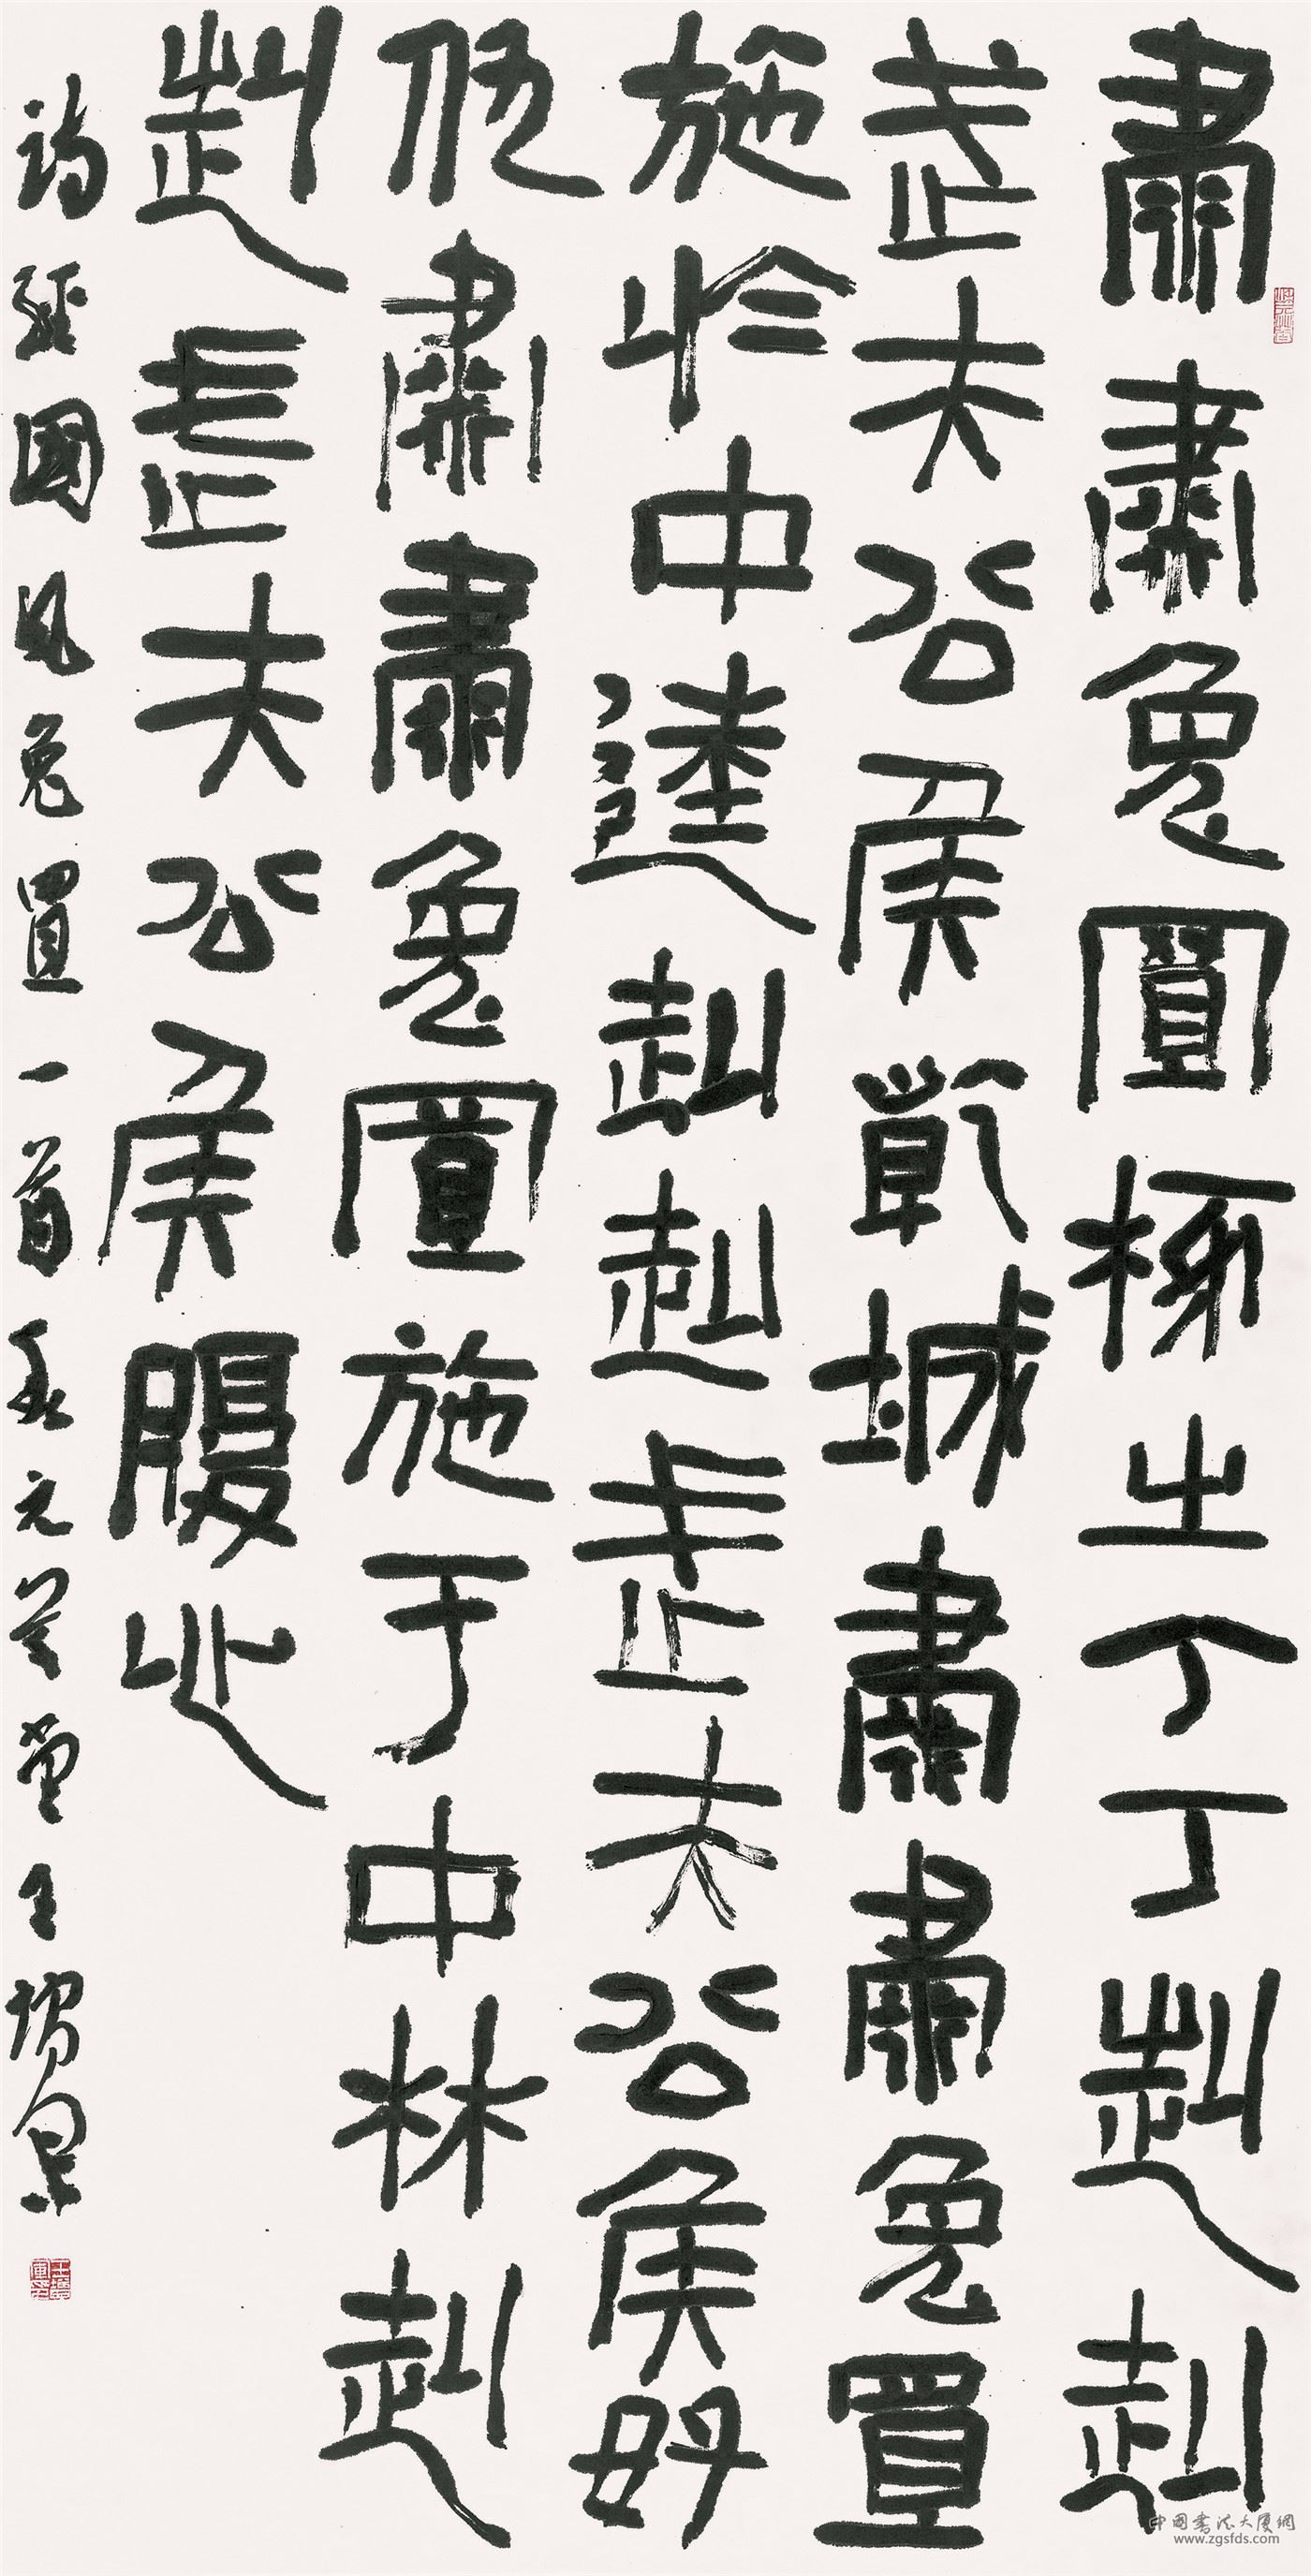 肅肅兔罝椓之丁丁赳赳
武夫公侯城肅肅兔罝
施於中逵赳赳武夫公侯好
仇肅肅兔罝施于中林赳
赳武夫公侯腹心
詩經國風兔罝一首元堂王增軍
中国书法大厦網
www.zgsfds.com